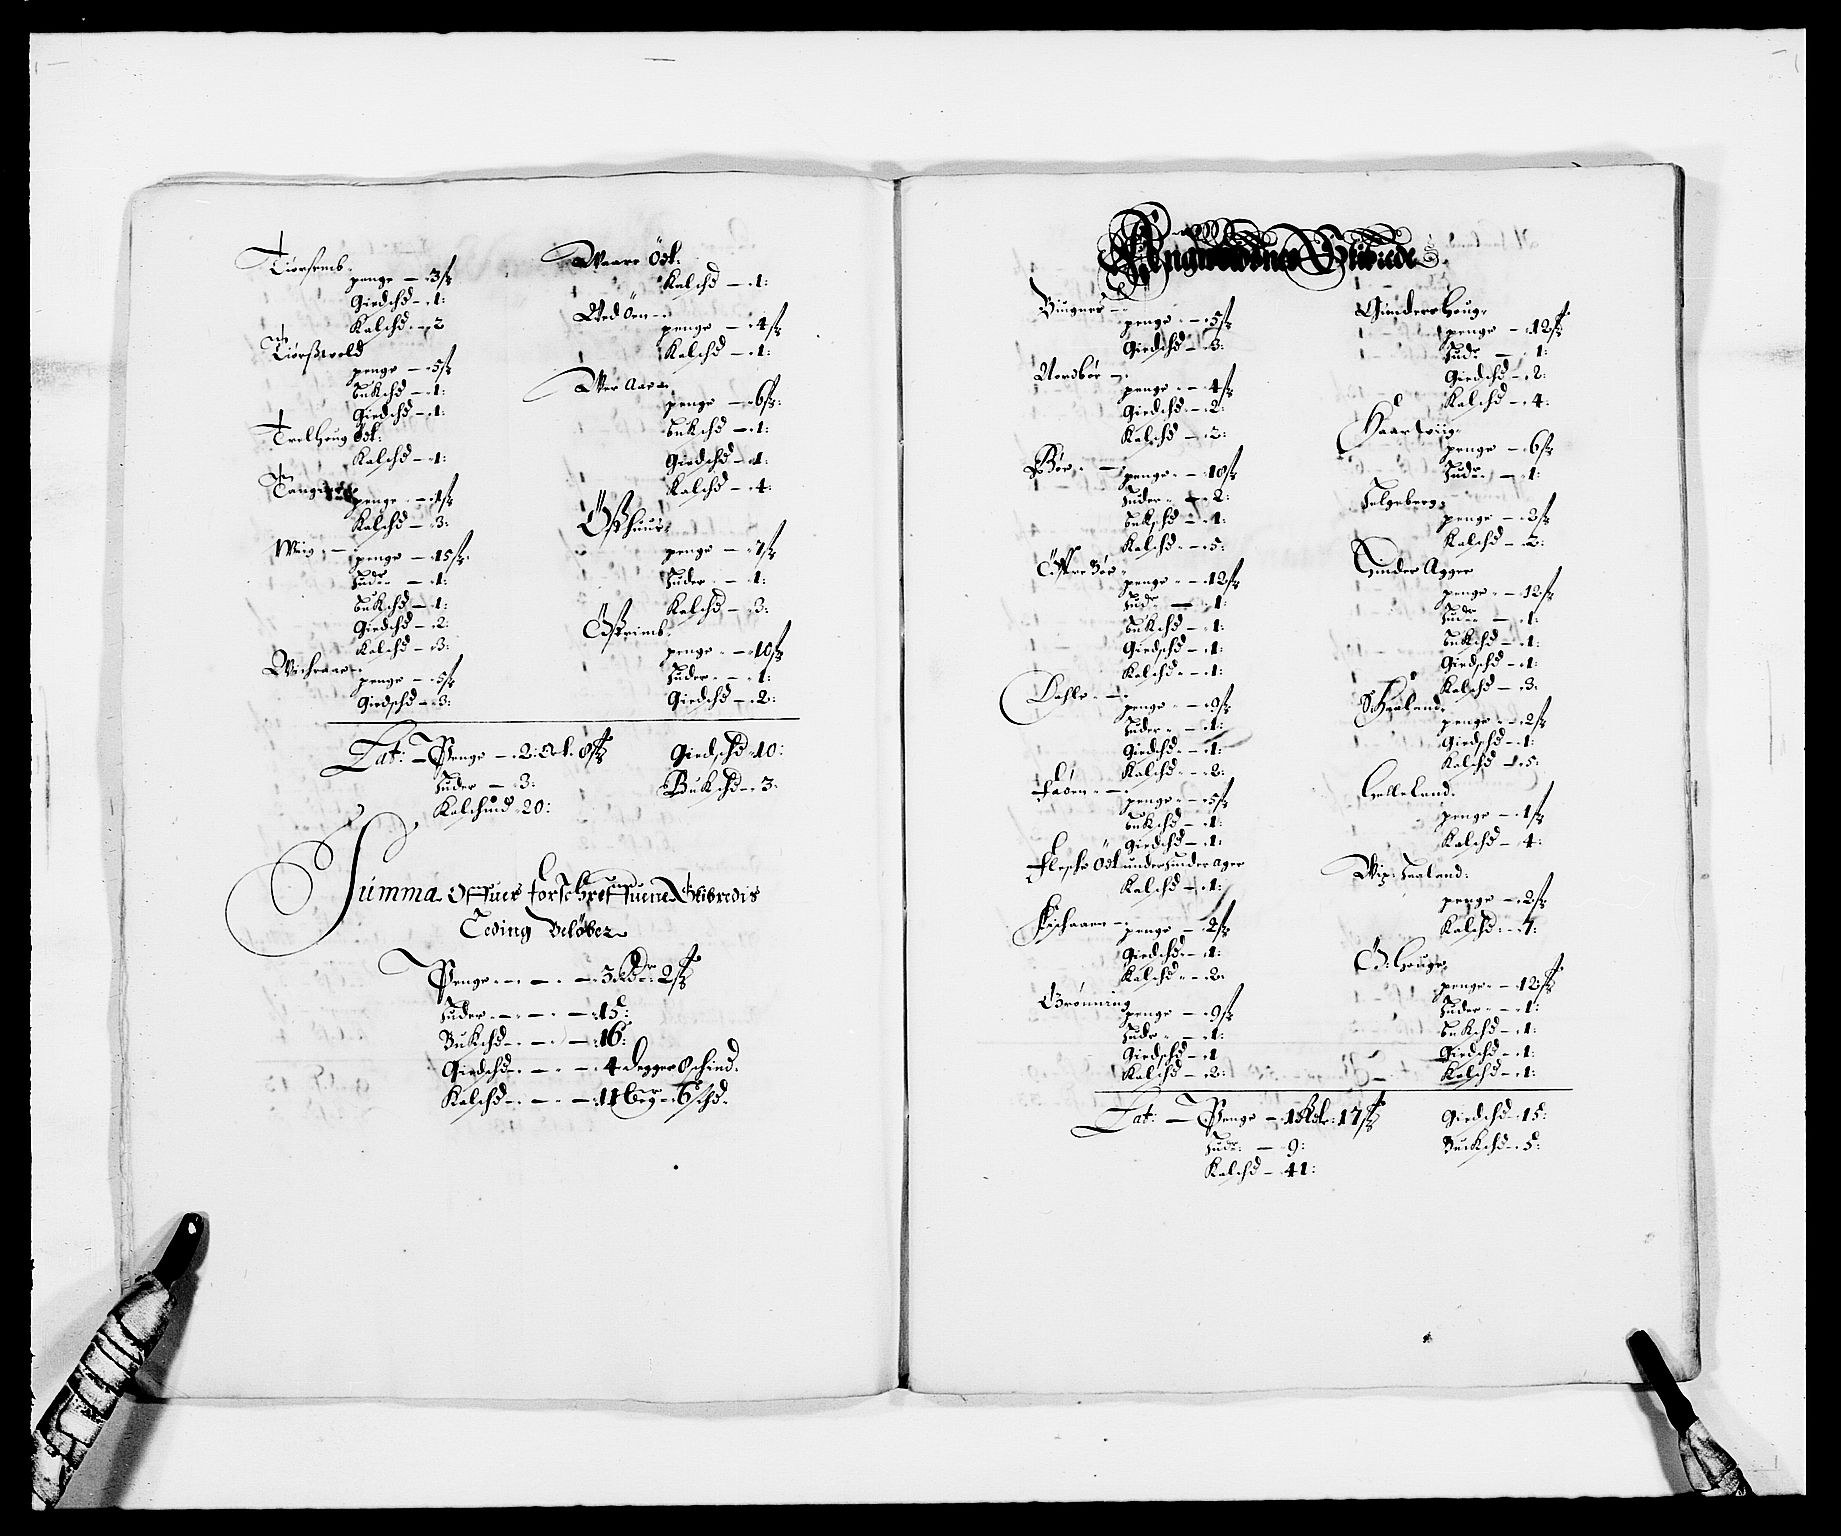 Tiørsemb.
penge — 3 sk
Giedschd — 1:
Kalschd — 2
Tiørßwold
penge — 5 sk
Bukschd — 1:
Giedschd — 1:
Trolhoug Ødt:
Kalschd — 1:
penge — 4 sk
Kalschd — 3:
Wiig —
penge — 15 sk
Huder — 1:
Bukschd — 1:
Giedschd — 2:
Kalschd — 3:
penge — 5 sk
Giedschd — 3:
Waare Ødt:
Kalschd — 1:
Wedøen —
penge — 4 sk
Kalschd — 1:
penge — 6 sk:
Bukschd — 1:
Giedschd — 1:
Kalschd — 4:
Østhuus:
penge — 7 sk
Huder — 1:
Kalschd — 3:
Østrimb:
penge — 10 sk
Huder — 1:
Giedschd — 2:
Lat: — Penge — 2: Rdr: 8 sk
Huder — 3:
Kalschind 20:
Giedschd 10:
Bukschd — 3:
Summa Offuer forschreffuene Schibredis
Leding Beløber
Penge — 3 Rdr: 2 sk
Huder — 15:
Bukschd — 16:
Giedschd — 4 degger 8 schind.
Kalschd — 11 Deger 6 schd.
Schibrede
penge — 5 sk
Giedschd — 3:
Nordbør —
penge — 4 sk
Giedschd — 2:
Kalschd — 2:
Bør —
penge — 18 sk
Huder — 2:
Bukschd — 1:
Kalschd — 5:
Østre Bør
penge — 12 sk
Huder — 1:
Bukschd — 1:
Giedschd — 1:
Kalschd — 1:
Dahle —
penge — 9 sk
Huder — 1:
Giedschd — 1:
Kalschd — 2:
penge — 5 sk
Bukschd — 1:
Giedschd — 1:
Flesche Ødt under Sunder Ager
Kalschd — 1:
penge — 2 sk
Giedschd — 1:
Kalschd — 2:
Grønning
penge — 9 sk
Huder — 1:
Giedschd — 1
Kalschd — 2:
Gunders Houg:
penge — 12 sk
Huder — 1:
Giedschd — 2:
Kalschd — 4:
Haartwiig
penge — 6 sk
Huder — 1:
Helgeberg
penge — 3 sk
Kalschd — 2:
Sunder Agger
penge — 12 sk
Huder — 1:
Bukschd — 1:
Giedschd — 1:
Kalschd — 3:
penge — 2 sk
Giedschd — 1:
Kalschd — 5:
Helleland:
penge — 1 sk
Kalschd — 4:
penge — 2 sk
Kalschd — 7:
Ø: Houge
penge — 12 sk
Huder — 1:
Bukschd — 1:
Giedschd — 1:
Kalschd — 1:
Lat: — Penge — 1 Rdr: 17 sk
Huder: — 9:
Kalschd — 41:
Giedschd 15:
Bukschd — 5: